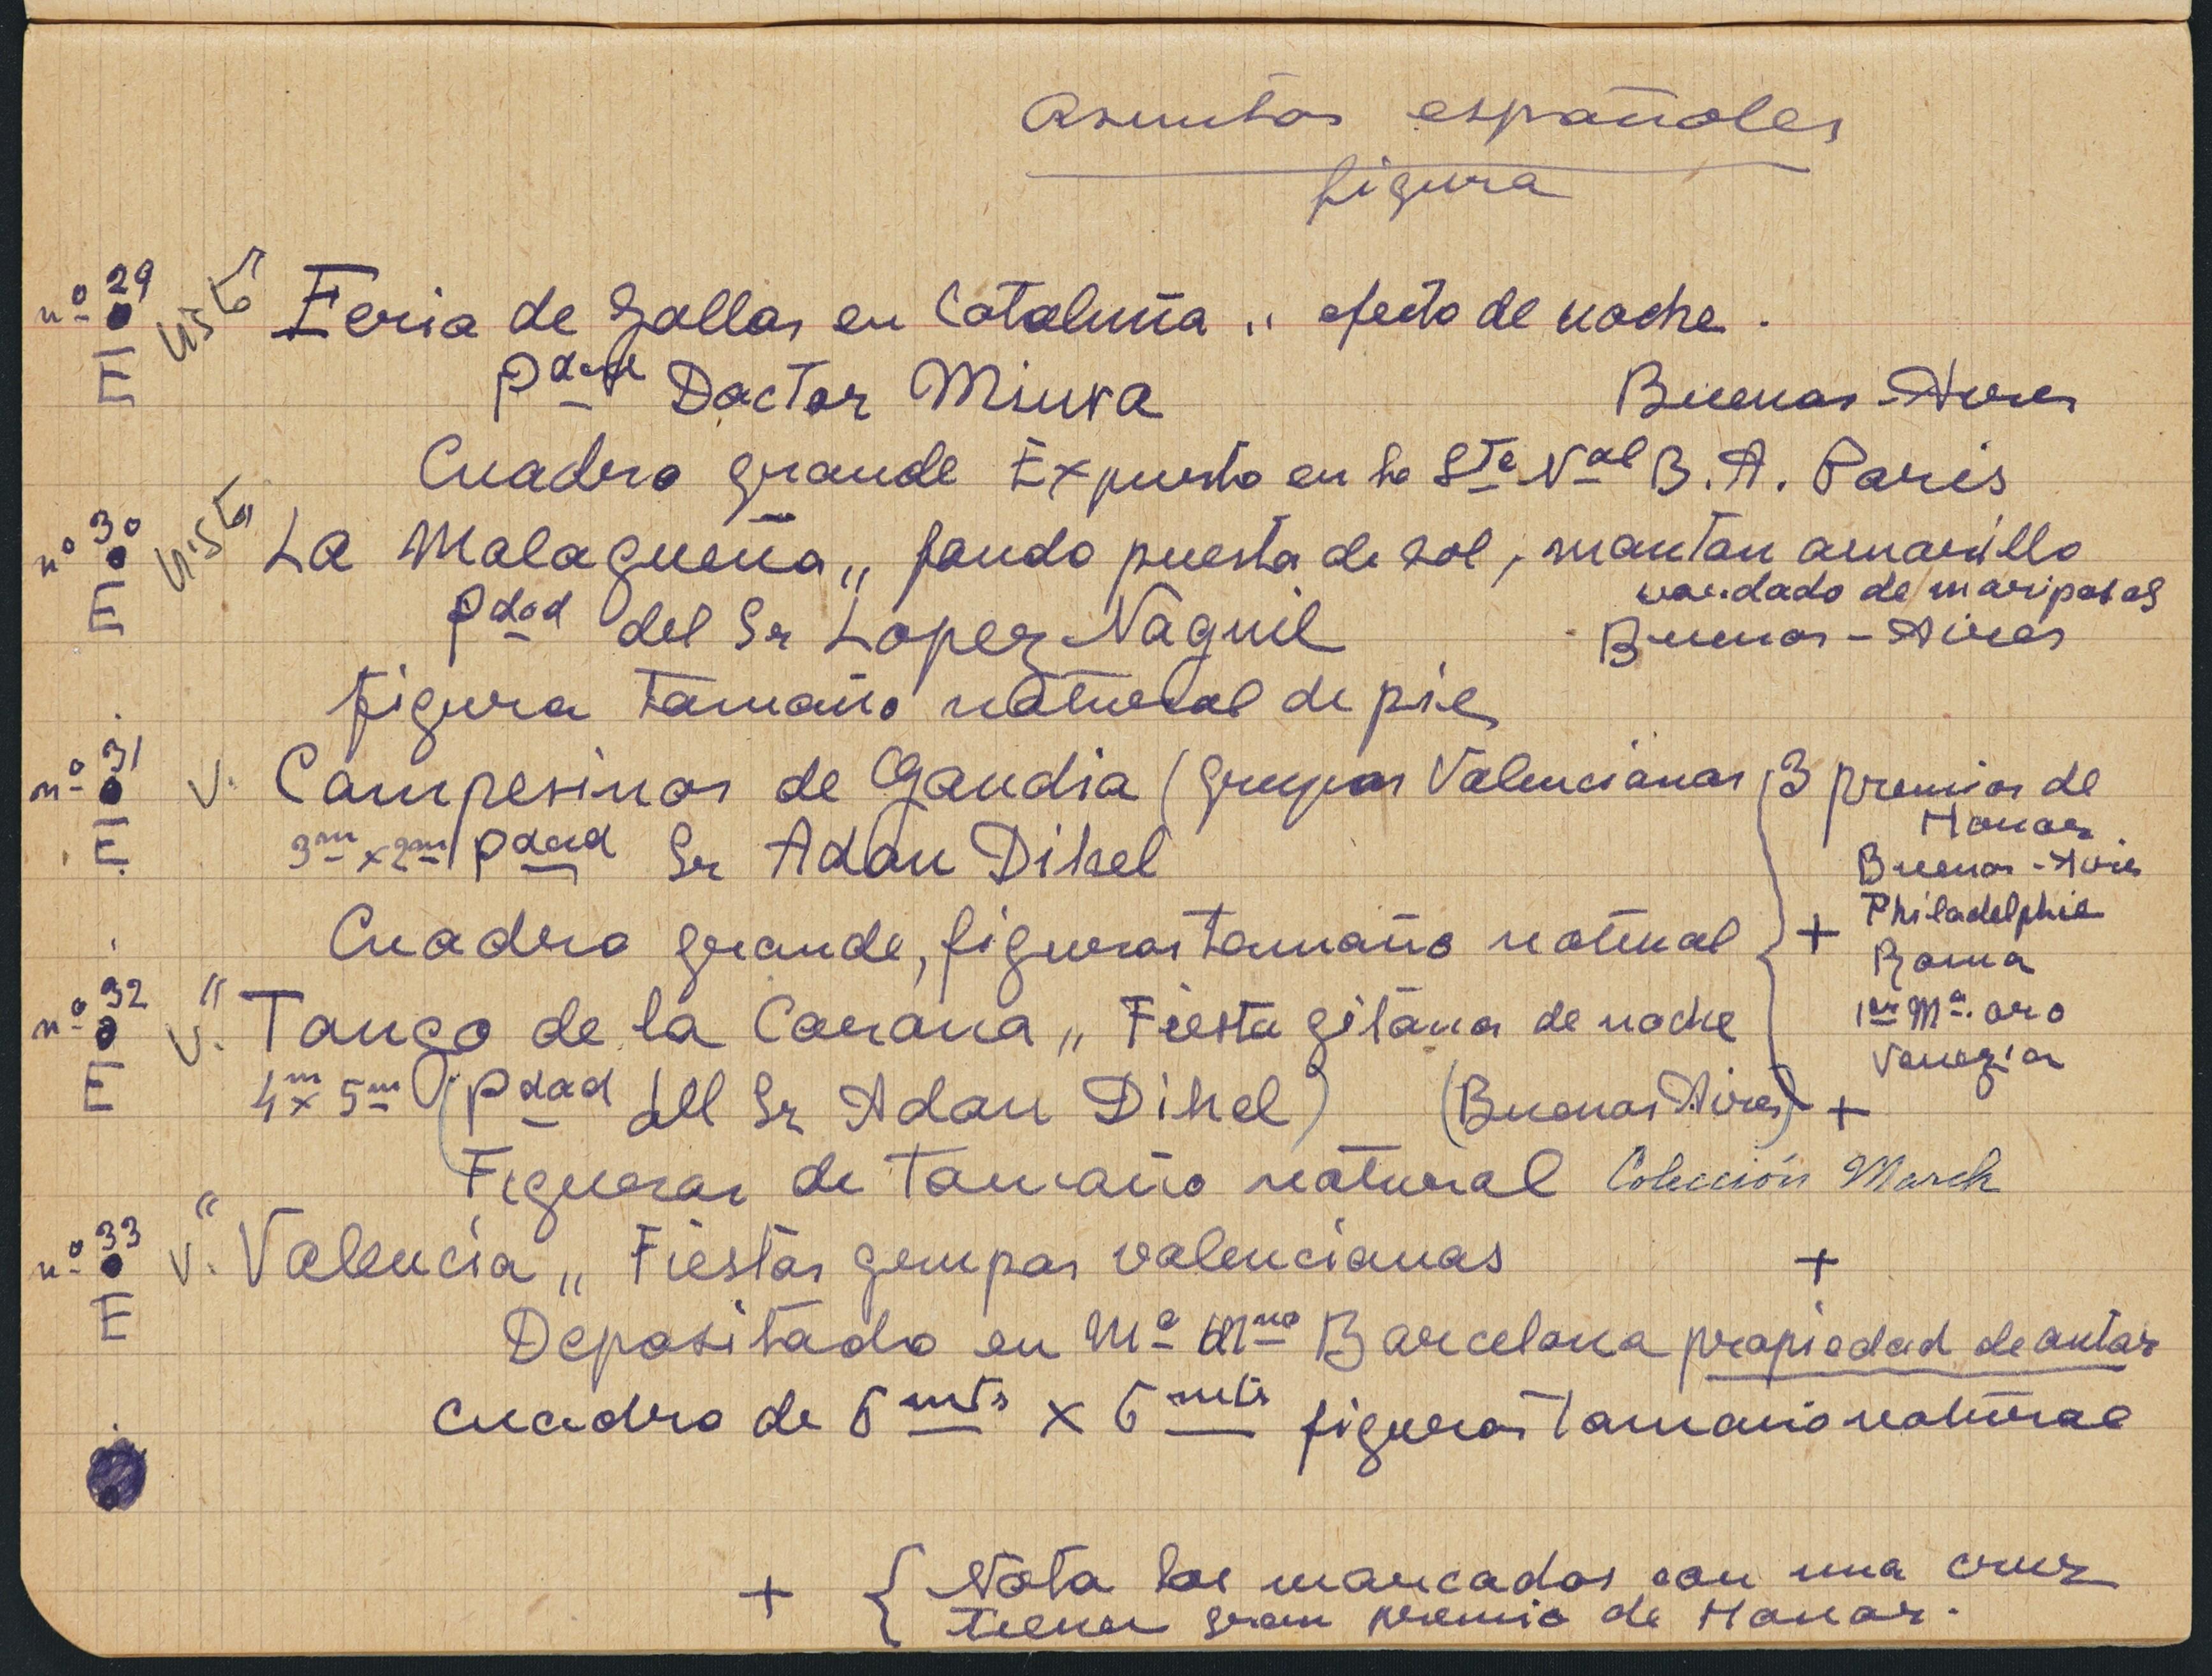 Asuntos españoles
figura
nº 29 E Visto Feria de Gallos en Cataluña „ efecto de noche.
Pdad Doctor Miura Buenos-Aires
Cuadro grande Expuesto en la Sté Nal B.A. Paris
nº 30 E Vista La Malagueña „ fondo puesta de sol, manton amarillo
vordado de mariposas
Pdad del Sr Lopez Naguil Buenos-Aires
figura tamaño natural de pie
nº 31 E V. Campesinos de Gandia (grupos Valencianos 3 premios de
Honor.
3m x 2m Pdad Sr Adan Dihel Buenos-Aires
Philadelphie
Cuadro grande, figuras tamaño natural + Roma
1er Mª. oro
Venezia
nº 32 E V. "Tango de la Corona „ Fiesta gitana de noche
4m x 5m (Pdad del Sr Adan Dihel) (Buenos Aires) +
Figuras de tamaño natural Colección March
nº 33 E V. "Valencia „ Fiestas grupos valencianas +
Depositado en Mº Mno Barcelona propiedad de autor
Cuadro de 6 mts x 6 mts figuras tamaño natural
+ { Nota los marcados con una cruz
tienen gran premio de Honor.